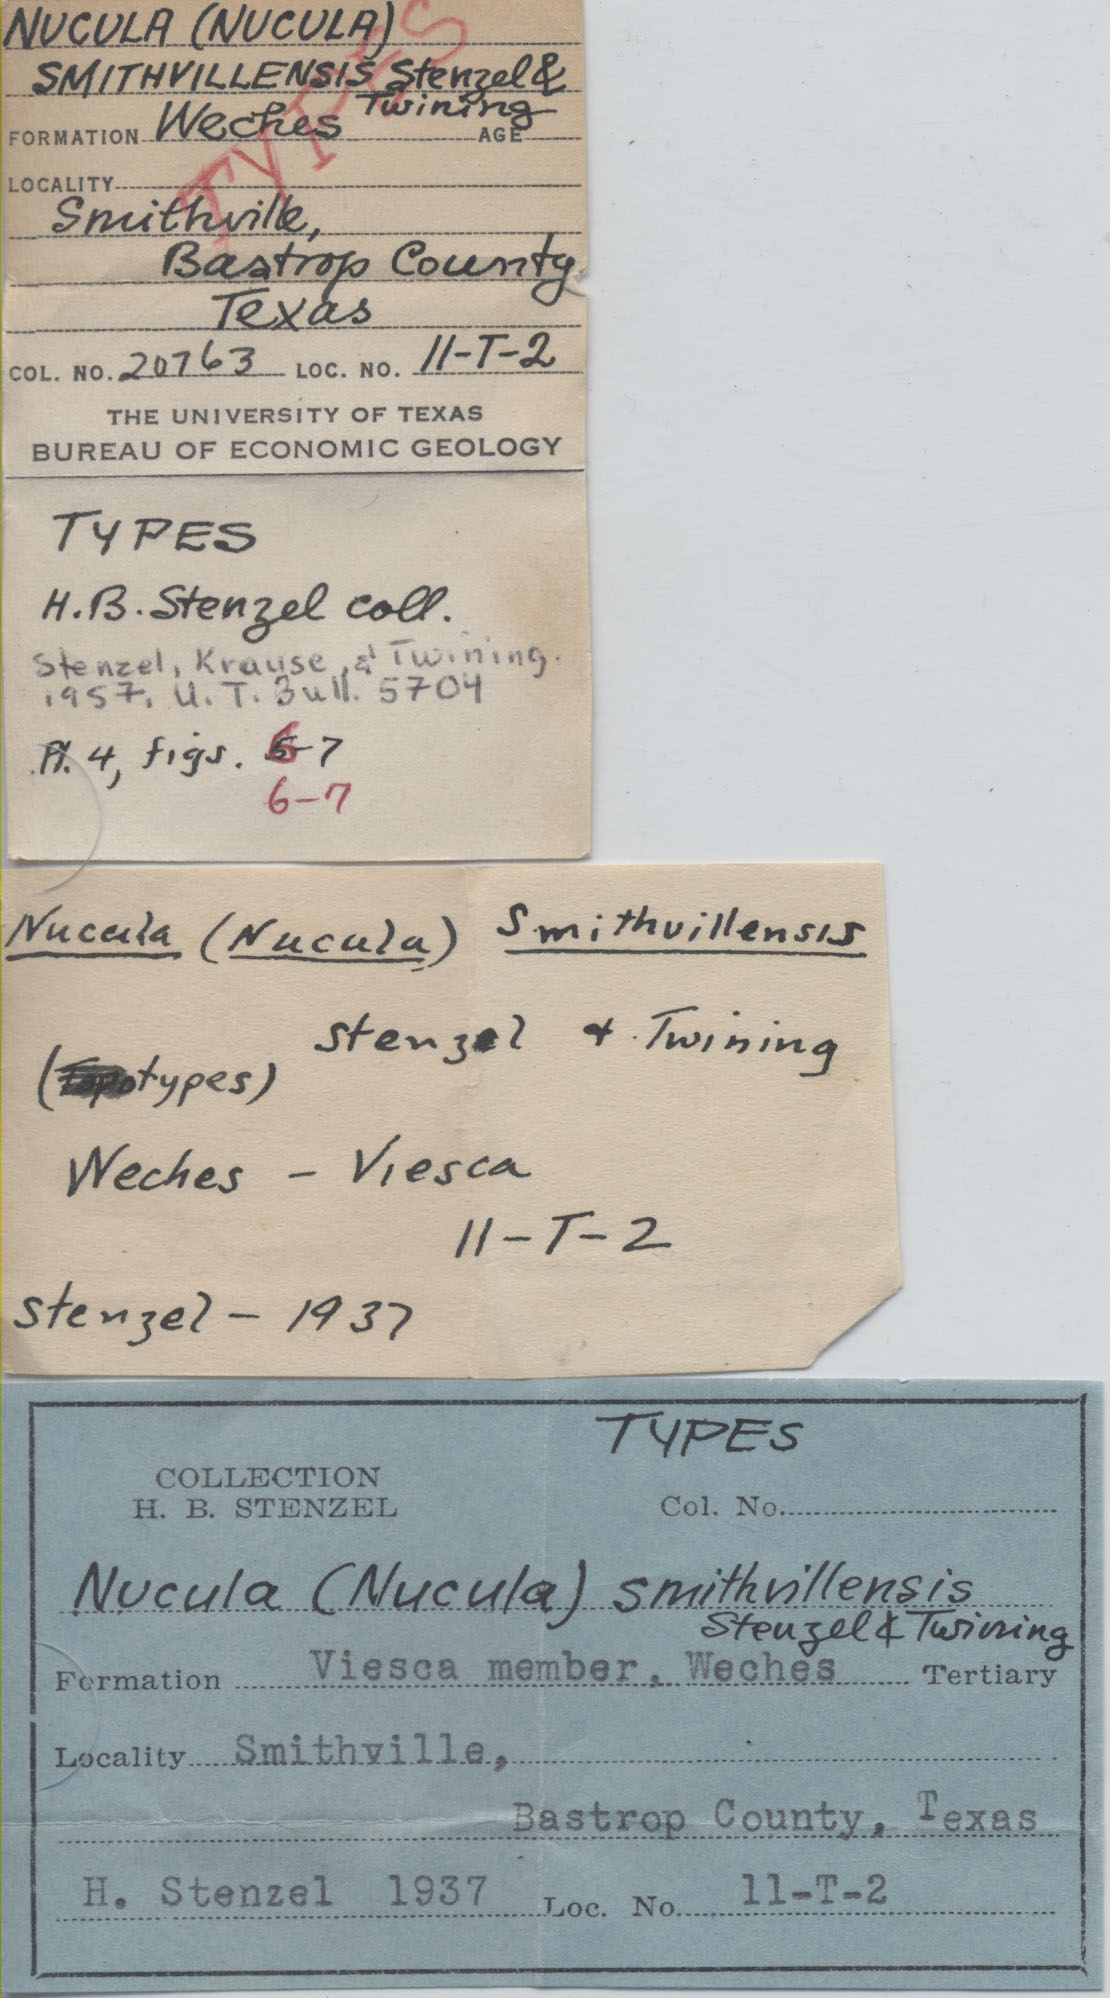 NUCULA (NUCULA)
SMITHVILLENSIS Stenzel &
Twining
FORMATION Weches AGE
TYPES
LOCALITY
Smithville,
Bastrop County
Texas
COL. NO. 20763 LOC. NO. 11-T-2
THE UNIVERSITY OF TEXAS
BUREAU OF ECONOMIC GEOLOGY
TYPES
H.B. Stenzel coll.
Stenzel, Krause, & Twining.
1957, U.T. Bull. 5704
Pl. 4, figs. 6-7
6-7
Nucula (Nucula) Smithvillensis
Stenzel & Twining
(types)
Weches - Viesca
11-T-2
Stenzel - 1937
TYPES
COLLECTION
H. B. STENZEL
Col. No.
Nucula (Nucula) smithvillensis
Stenzel & Twining
Formation Viesca member, Weches Tertiary
Locality Smithville,
Bastrop County, Texas
H. Stenzel 1937 Loc. No. 11-T-2